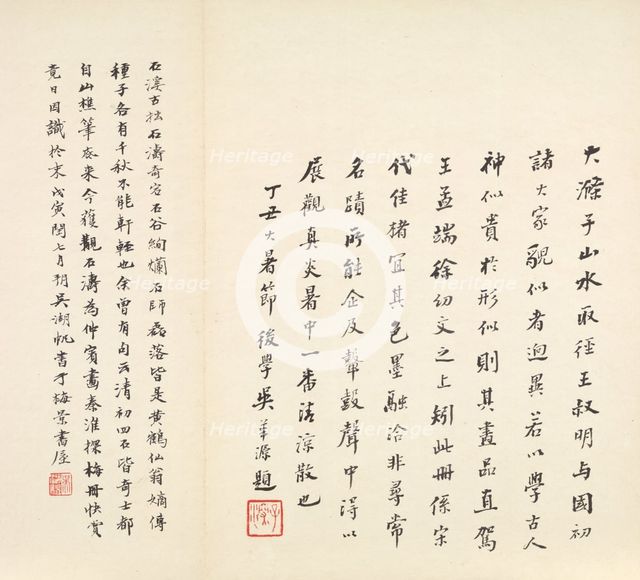 大滌子山水取徑王叔明與國初
諸大家貌似者迥異若以學古人
神似貴於形似則其畫品直駕
王孟端徐幼文之上矧此冊係宋
代佳楮宜其色墨融洽非尋常
名蹟所能企及鼙鼓聲中得以
展觀真炎暑中一番清涼散也
丁丑大暑節後學吳華源題
石溪古拙石濤奇宕石谷絢爛石師磊落皆是黃鶴仙翁嫡傳
種子各有千秋不能軒輊也余曾有句云清初四石皆奇士都
自山樵筆底來今獲觀石濤為仲賓畫秦淮探梅冊快賞
竟日因識於末戊寅閏七月朔吳湖帆書于梅景書屋
Heritage
Heritage
Heritage
Heritage
Heritage
Heritage